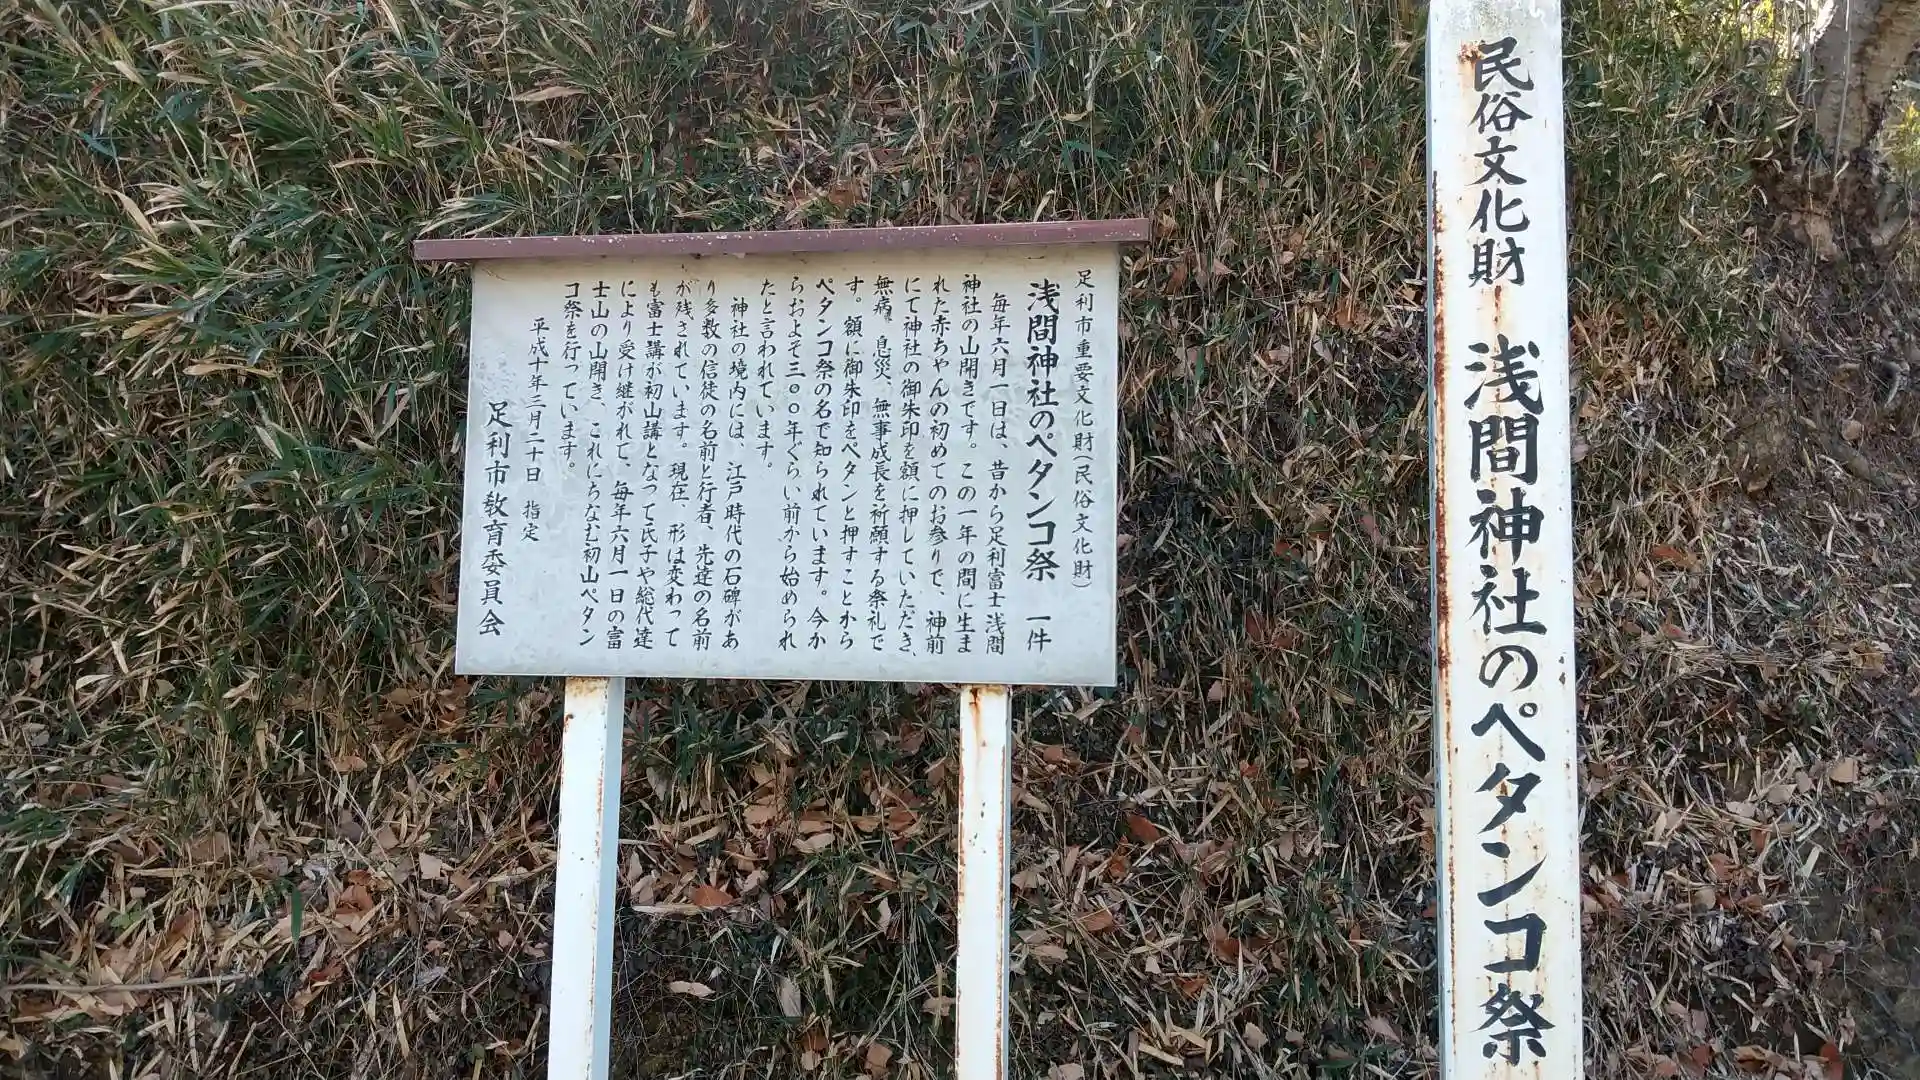 民俗文化財 浅間神社のペタンコ祭
足利市重要文化財(民俗文化財)
浅間神社のペタンコ祭 一件
毎年六月一日は、昔から足利富士浅間
神社の山開きです。この一年の間に生ま
れた赤ちゃんの初めてのお参りで、神前
にて神社の御朱印を額に押していただき、
無病、息災、無事成長を祈願する祭礼で
す。額に御朱印をペタンと押すことから
ペタンコ祭の名で知られています。今か
らおよそ三〇〇年ぐらい前から始められ
たと言われています。
神社の境内には、江戸時代の石碑があ
り多数の信徒の名前と行者、先達の名前
が残されています。現在、形は変わって
も富士講が初山講となって氏子や総代達
により受け継がれて、毎年六月一日の富
士山の山開き、これにちなむ初山ペタン
コ祭を行っています。
平成十年三月二十日 指定
足利市教育委員会